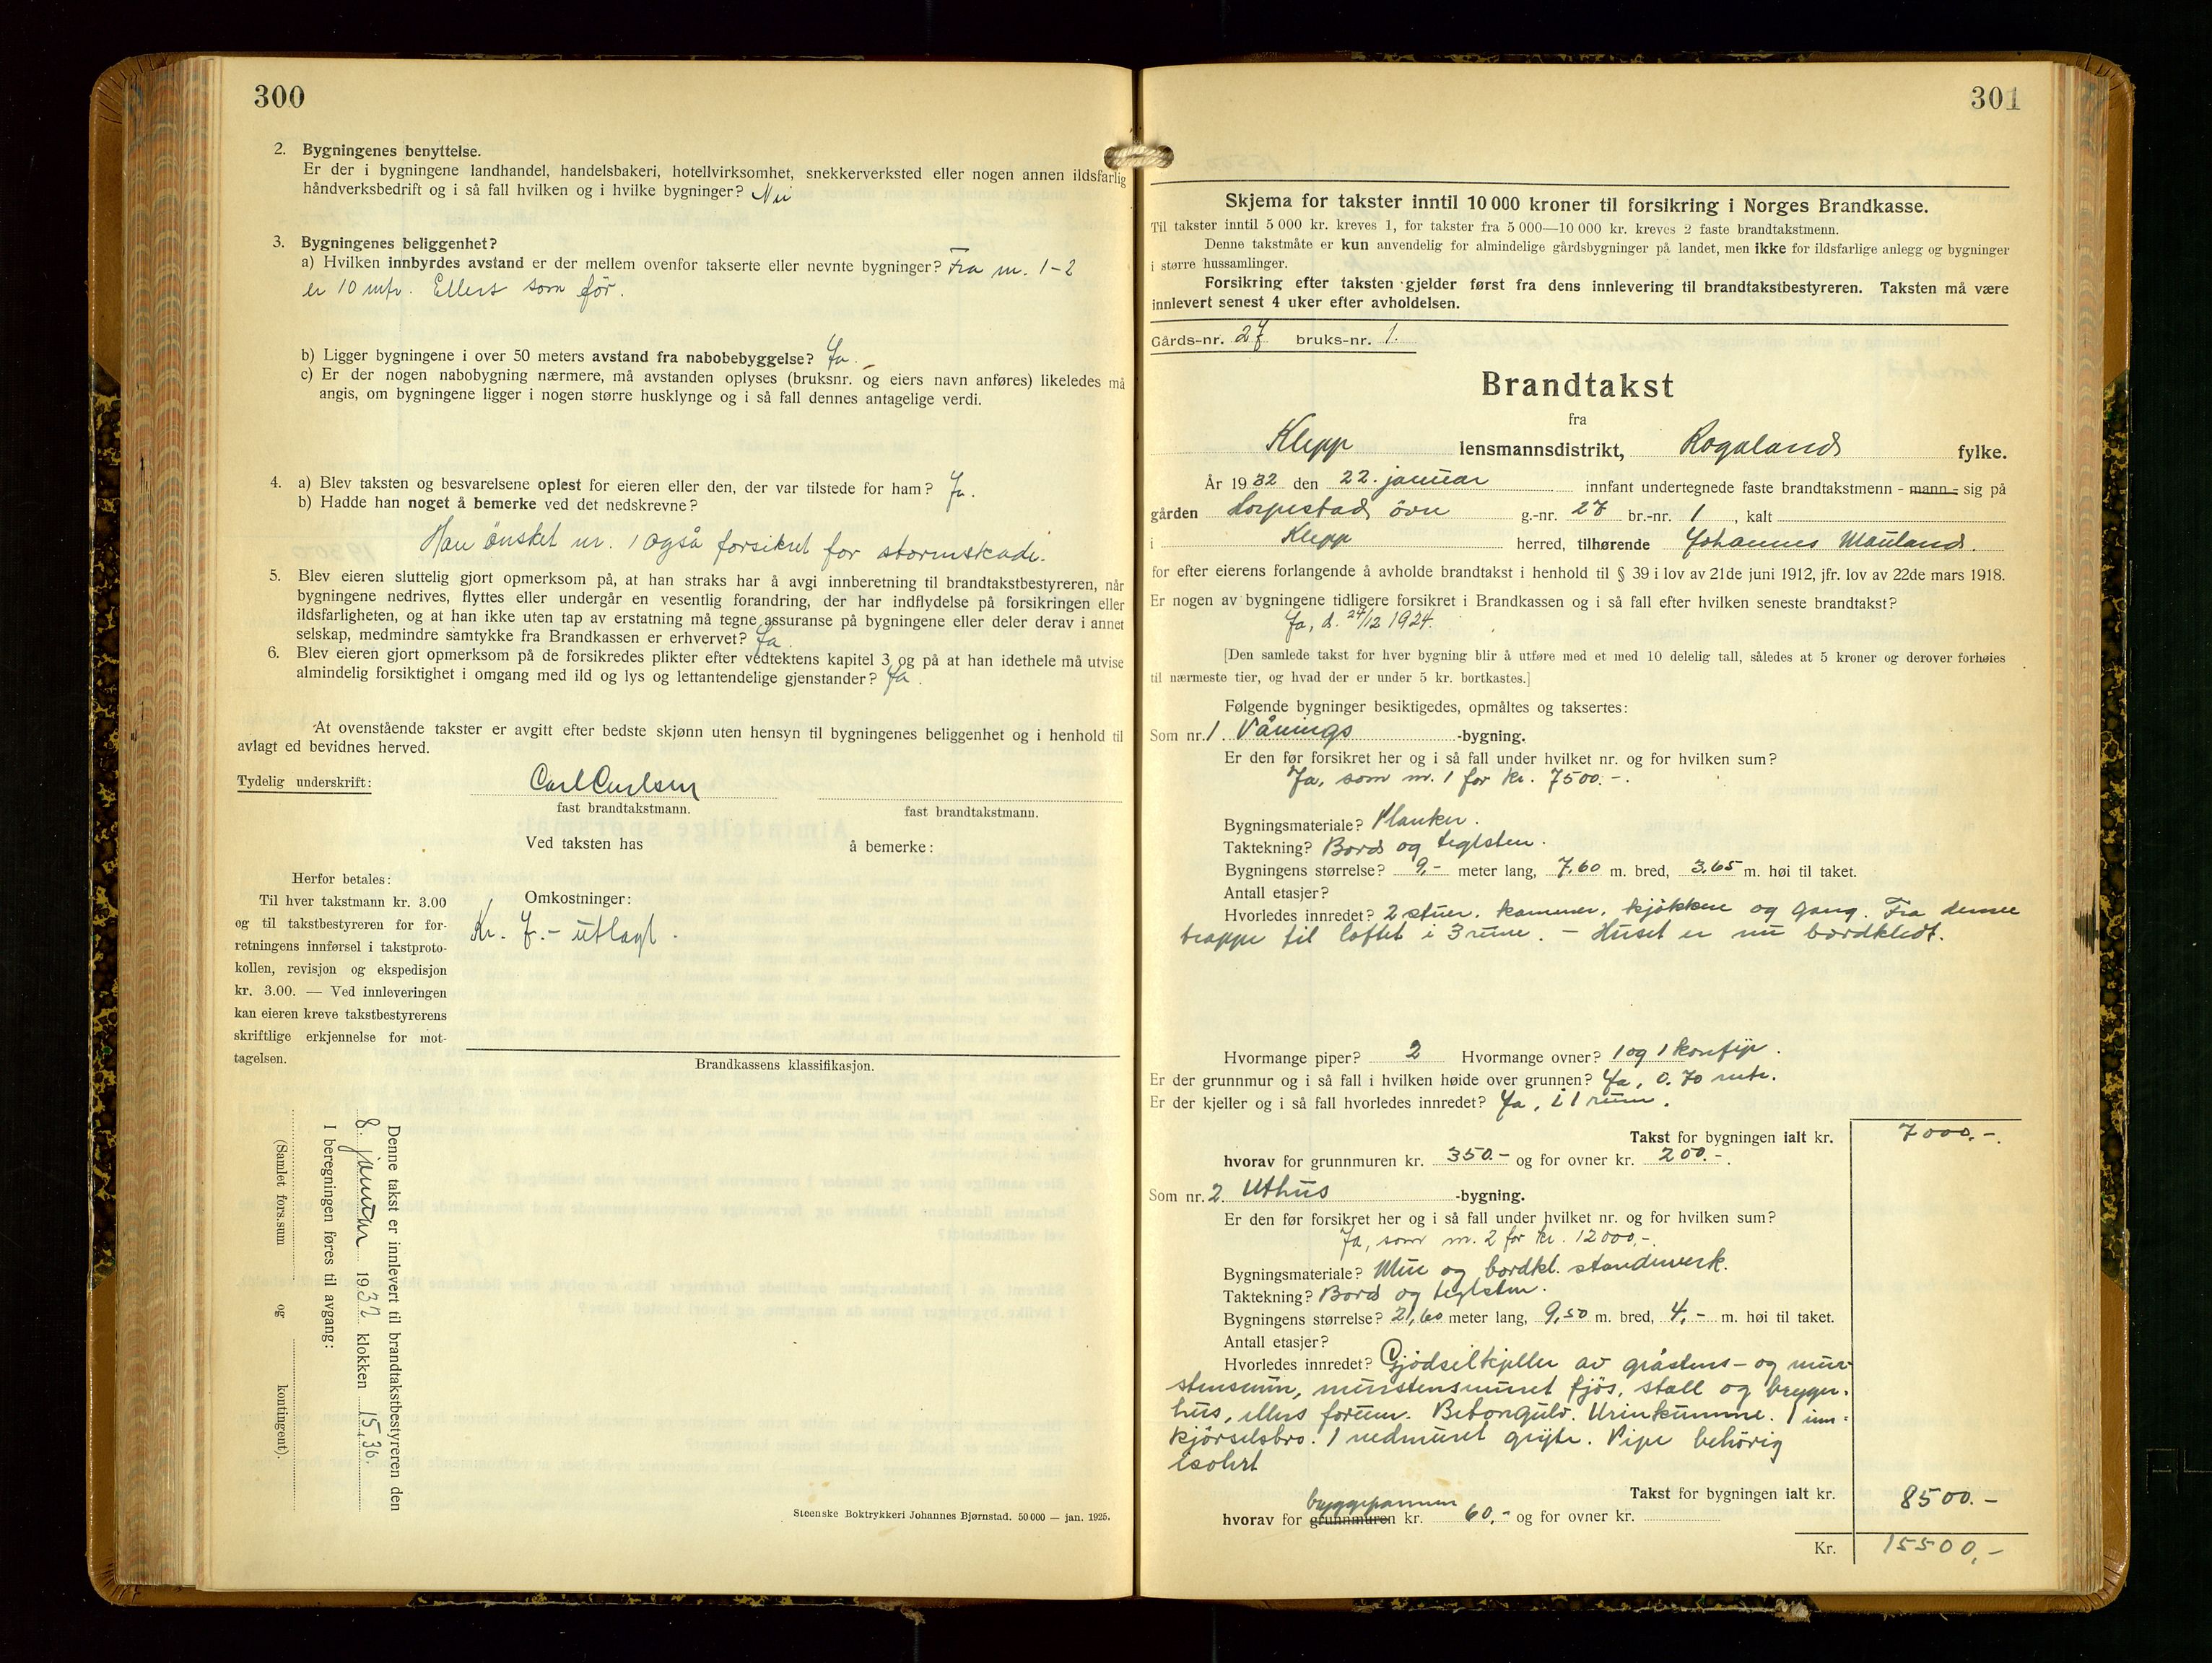 300
2. Bygningenes benyttelse.
Er der i bygningene landhandel, handelsbakeri, hotellvirksomhet, snekkerverksted eller nogen annen ildsfarlig
håndverksbedrift og i så fall hvilken og i hvilke bygninger? Nei
3. Bygningenes beliggenhet?
a) Hvilken innbyrdes avstand er der mellem ovenfor takserte eller nevnte bygninger? Fra nr. 1-2
er 10 mtr. Ellers som før.
b) Ligger bygningene i over 50 meters avstand fra nabobebyggelse? Ja.
c) Er der nogen nabobygning nærmere, må avstanden oplyses (bruksnr. og eiers navn anføres) likeledes må
angis, om bygningene ligger i nogen større husklynge og i så fall dennes antagelige verdi.
4. a) Blev taksten og besvarelsene oplest for eieren eller den, der var tilstede for ham? Ja.
b) Hadde han noget å bemerke ved det nedskrevne?
Han ønsket nr. 1 også forsikret for stormskade.
5. Blev eieren sluttelig gjort opmerksom på, at han straks har å avgi innberetning til brandtakstbestyreren, når
bygningene nedrives, flyttes eller undergår en vesentlig forandring, der har indflydelse på forsikringen eller
ildsfarligheten, og at han ikke uten tap av erstatning må tegne assuranse på bygningene eller deler derav i annet
selskap, medmindre samtykke fra Brandkassen er erhvervet? Ja.
6. Blev eieren gjort opmerksom på de forsikredes plikter efter vedtektens kapitel 3 og på at han idethele må utvise
almindelig forsiktighet i omgang med ild og lys og lettantendelige gjenstander? Ja.
At ovenstående takster er avgitt efter bedste skjønn uten hensyn til bygningenes beliggenhet og i henhold til
avlagt ed bevidnes herved.
Tydelig underskrift: Carl Carlsen
fast brandtakstmann. fast brandtakstmann.
Ved taksten has å bemerke:
Herfor betales:
Til hver takstmann kr. 3.00
og til takstbestyreren for for-
retningens innførsel i takstproto-
kollen, revisjon og ekspedisjon
kr. 3.00. — Ved innleveringen
kan eieren kreve takstbestyrerens
skriftlige erkjennelse for mot-
tagelsen.
Omkostninger:
Kr. 7.- utlagt.
Brandkassens klassifikasjon.
Denne takst er innlevert til brandtakstbestyreren den
8. januar 1932 klokken 15,36.
I beregningen føres til avgang:
(Samlet fors.sum og kontingent).
Steenske Boktrykkeri Johannes Bjørnstad. 50 000 — jan. 1925.
301
Skjema for takster inntil 10 000 kroner til forsikring i Norges Brandkasse.
Til takster inntil 5 000 kr. kreves 1, for takster fra 5 000—10 000 kr. kreves 2 faste brandtakstmenn.
Denne takstmåte er kun anvendelig for almindelige gårdsbygninger på landet, men ikke for ildsfarlige anlegg og bygninger
i større hussamlinger.
Forsikring efter taksten gjelder først fra dens innlevering til brandtakstbestyreren. Taksten må være
innlevert senest 4 uker efter avholdelsen.
Gårds-nr. 27 bruks-nr. 1.
Brandtakst
fra
Klepp lensmannsdistrikt, Rogaland fylke.
År 1932 den 22. januar innfant undertegnede faste brandtakstmenn - mann - sig på
gården Horpestad øvre g.-nr. 27 br.-nr. 1, kalt
i Klepp herred, tilhørende Johannes Mauland.
for efter eierens forlangende å avholde brandtakst i henhold til § 39 i lov av 21de juni 1912, jfr. lov av 22de mars 1918.
Er nogen av bygningene tidligere forsikret i Brandkassen og i så fall efter hvilken seneste brandtakst?
Ja, d. 24/12 1924.
[Den samlede takst for hver bygning blir å utføre med et med 10 delelig tall, således at 5 kroner og derover forhøies
til nærmeste tier, og hvad der er under 5 kr. bortkastes.]
Følgende bygninger besiktigedes, opmåltes og taksertes:
Som nr. 1. Vånings -bygning.
Er den før forsikret her og i så fall under hvilket nr. og for hvilken sum?
Ja, som nr. 1 for kr. 7500.-.
Bygningsmateriale? Planker.
Taktekning? Bord og teglsten.
Bygningens størrelse? 9,- meter lang, 7,60 m. bred, 3,65 m. høi til taket.
Antall etasjer?
Hvorledes innredet? 2 stuer, kammer, kjøkken og gang. Fra denne
trappe til loftet i 3 rum. - Huset er nu bordkledt.
Hvormange piper? 2 Hvormange ovner? 1 og 1 komfyr.
Er der grunnmur og i så fall i hvilken høide over grunnen? Ja, 0.70 mtr.
Er der kjeller og i så fall hvorledes innredet? Ja, i 1 rum.
Takst for bygningen ialt kr. 7000.-.
hvorav for grunnmuren kr. 350.- og for ovner kr. 200.-.
Som nr. 2. Uthus -bygning.
Er den før forsikret her og i så fall under hvilket nr. og for hvilken sum?
Ja, som nr. 2 for kr. 12000,-.
Bygningsmateriale? Mur og bordkl. stenderverk.
Taktekning? Bord og teglsten.
Bygningens størrelse? 21,60 meter lang, 9,50 m. bred, 4,- m. høi til taket.
Antall etasjer?
Hvorledes innredet? Gjødselkjeller av gråstens- og mur-
stensmur, murstensmuret fjøs, stall og brygger-
hus, ellers forrum. Betongulv. Urinkumme. 1 inn-
kjørselsbro. 1 nedmuret gryte. Pipe behørig
isolert
Takst for bygningen ialt kr. 8500.-
bryggepannen
hvorav for grunnmuren kr. 60,- og for ovner kr.
Kr. 15500,-